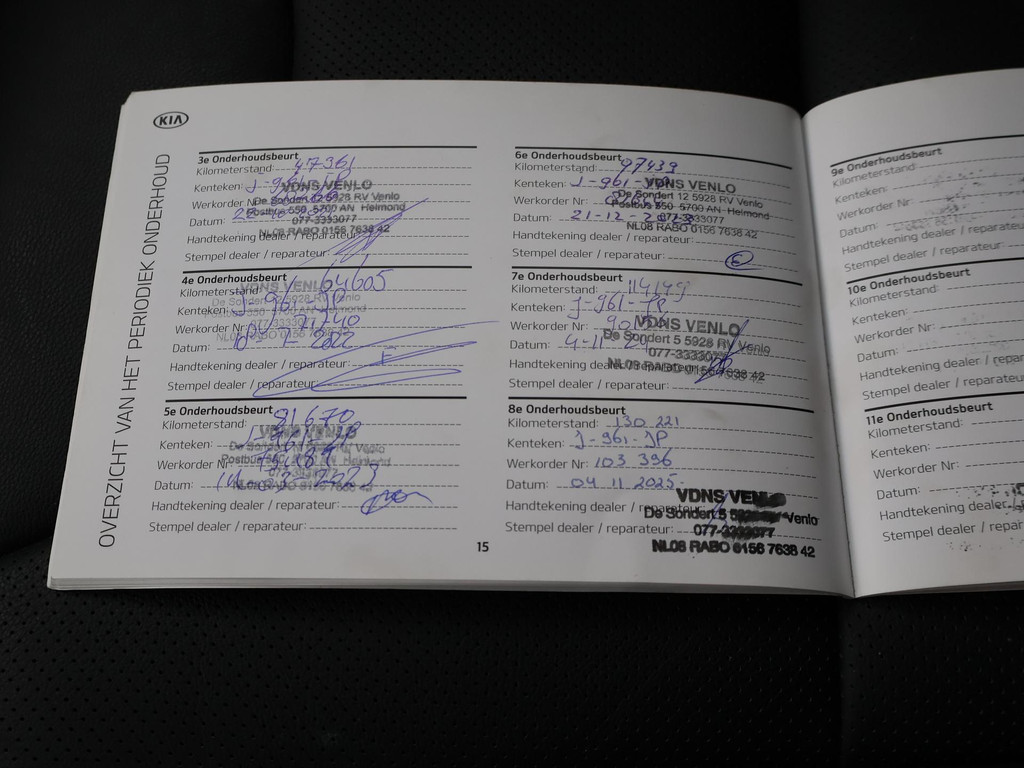 KIA
OVERZICHT VAN HET PERIODIEK ONDERHOUD
3e Onderhoudsbeurt
Kilometerstand: 47361
Kenteken: J-961-JP
VDNS VENLO
Werkorder Nr:
De Sondert 12 5928 RV Venlo
Postbus 550 5700 AN Helmond
Datum:
077-3333077
NL08 RABO 0156 7638 42
Handtekening dealer / reparateur:
Stempel dealer / reparateur:
4e Onderhoudsbeurt
Kilometerstand: 64605
VDNS VENLO
De Sondert 12 5928 RV Venlo
Kenteken: J-961-JP
Werkorder Nr:
Datum: 2022
Handtekening dealer / reparateur:
Stempel dealer / reparateur:
5e Onderhoudsbeurt
Kilometerstand: 81670
VDNS VENLO
Kenteken: J-961-JP
De Sondert 12 5928 RV Venlo
Postbus 550 5700 AN Helmond
Werkorder Nr:
Datum:
NL08 RABO 0156 7638 42
Handtekening dealer / reparateur:
Stempel dealer / reparateur:
15
6e Onderhoudsbeurt
Kilometerstand: 97439
Kenteken: J-961-JP
VDNS VENLO
Werkorder Nr:
De Sondert 12 5928 RV Venlo
Postbus 550 5700 AN Helmond
Datum: 21-12-2023
077-3333077
NL08 RABO 0156 7638 42
Handtekening dealer / reparateur:
Stempel dealer / reparateur:
7e Onderhoudsbeurt
Kilometerstand: 114149
Kenteken: J-961-JP
Werkorder Nr:
VDNS VENLO
De Sondert 5 5928 RV Venlo
Datum: 4-11-24
077-3333077
Handtekening dealer / reparateur:
NL08 RABO 0156 7638 42
Stempel dealer / reparateur:
8e Onderhoudsbeurt
Kilometerstand: 130 221
Kenteken: J-961-JP
Werkorder Nr: 103 396
Datum: 04 11 2025
VDNS VENLO
Handtekening dealer / reparateur:
De Sondert 5 5928 Venlo
Stempel dealer / reparateur:
077-3333077
NL08 RABO 0156 7638 42
9e Onderhoudsbeurt
Kilometerstand:
Kenteken:
Werkorder Nr:
Datum:
Handtekening dealer / reparateur
Stempel dealer / reparateur
10e Onderhoudsbeurt
Kilometerstand:
Kenteken:
Werkorder Nr:
Datum:
Handtekening dealer / repara
Stempel dealer / reparateu
11e Onderhoudsbeurt
Kilometerstand:
Kenteken:
Werkorder Nr:
Datum:
Handtekening dealer /
Stempel dealer / repar